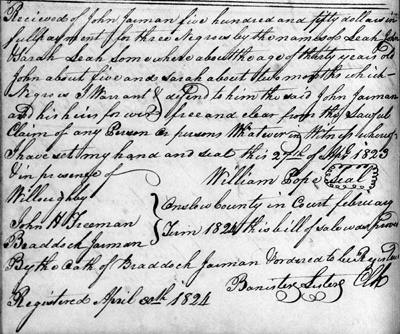 Recieved of John Jarman five hundred and fifty dollars in
full payment for three Negroes by the names of Leah John
Sarah Leah some where about the age of thirty years old
John about five and Sarah about months which
Negroes I Warrant & defend to him the said John Jarman
and his heirs forever free and clear from the Lawful
Claim of any Person or persons Whatever in Witness whereof
I have set my hand and seal this 27th of 1823
in presence of
William Pope Seal
Willoughby
John H Freeman
Braddock Jarman
Onslow County in Court february
Term 1824 this bill of Sale was
By the Oath of Braddock Jarman & ordered to be Registered
Banister Lister Clk
Registered April 20th 1824